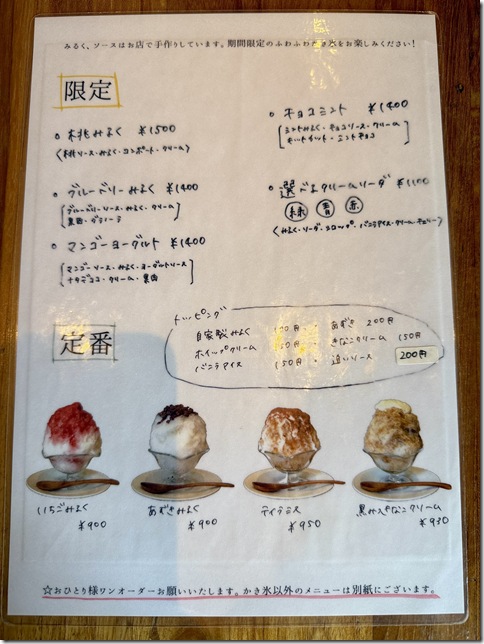 みるく、ソースはお店で手作りしています。期間限定のふわふわかき氷をお楽しみください!
限定
桃みるく ¥1500
(桃ソース・みるく・コンポート・クリーム)
ブルーベリーみるく ¥1400
ブルーベリーソース・みるく・クリーム
果肉・グラノーラ
マンゴーヨーグルト ¥1400
マンゴーソース・みるく・ヨーグルトソース
ナタデココ・クリーム・果肉
チョコミント ¥1400
ミントみるく・チョコソース・クリーム
キットカット・ミントチョコ
選べるクリームソーダ ¥1100
緑 青 赤
(みるく・ソーダ・シロップ・バニラアイス・クリーム・チェリー)
定番
トッピング
自家製みるく 100円 ・ あずき 200円
ホイップクリーム 50円 ・ きなこクリーム 150円
バニラアイス 150円 ・ 追いソース 200円
いちごみるく
¥900
あずきみるく
¥900
ティラミス
¥950
黒みつきなこクリーム
¥930
☆おひとり様ワンオーダーお願いいたします。かき氷以外のメニューは別紙にございます。